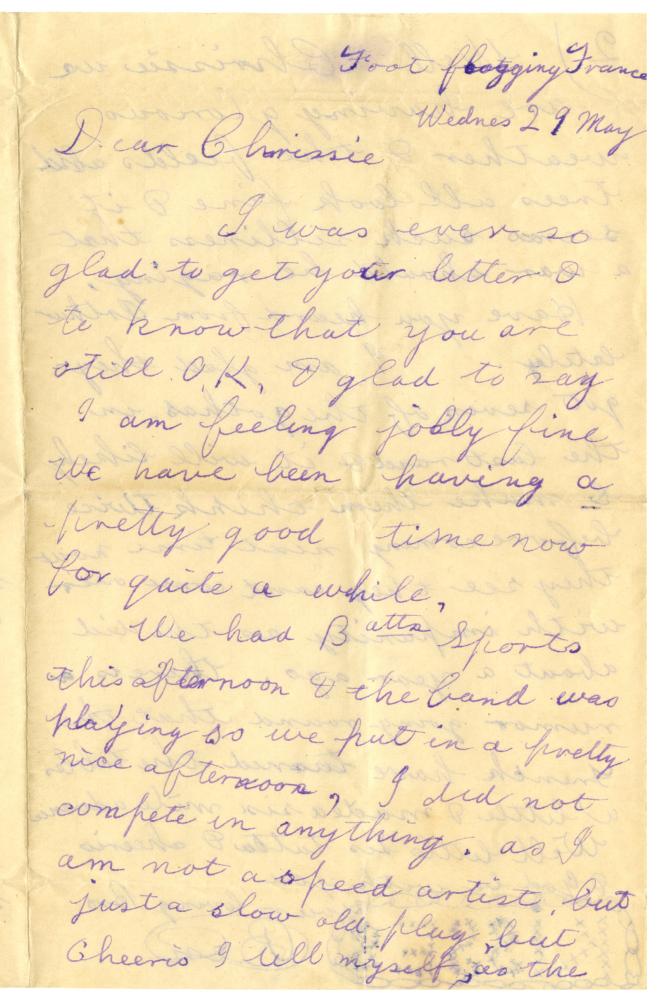 Foot flogging France
Wednes 29 May
Dear Chrissie
I was ever so
glad to get your letter &
to know that you are
still O.K, & glad to say
I am feeling jolly fine
We have been having a
pretty good time now
for quite a while,
We had Battn Sports
this afternoon & the band was
playing so we put in a pretty
nice afternoon, I did not
compete in anything. as I
am not a speed artist, but
just a slow old plug, but
Cheerio I tell myself, as the